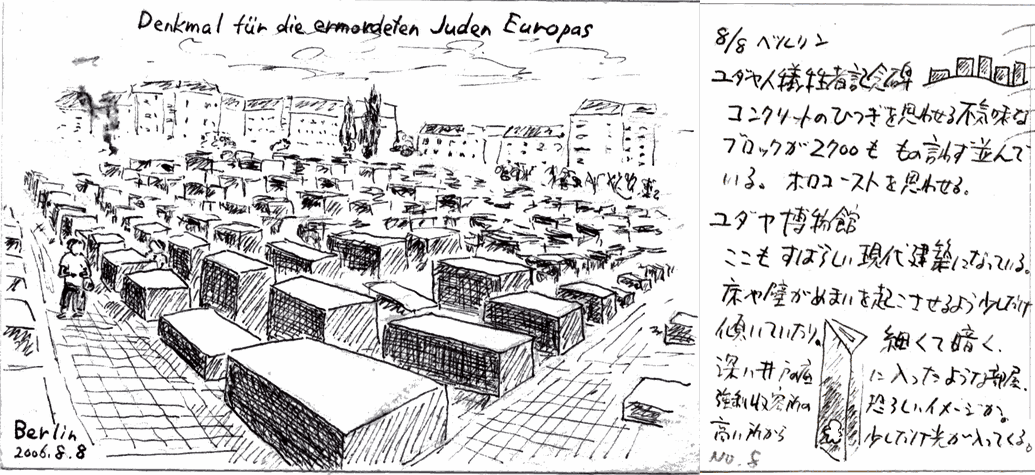 Denkmal für die ermordeten Juden Europas
Berlin
2006.8.8
8/8 ベルリン
ユダヤ人犠牲者記念碑
コンクリートのひつぎを思わせる不気味な
ブロックが2700も もの言わず並んで
いる。 ホロコーストを思わせる。
ユダヤ博物館
ここも すばらしい現代建築になっている。
床や壁がめまいを起こさせるよう少しだけ
傾いていたり。 細くて暗く、
深い井戸の底に入ったような部屋
強制収容所の恐ろしいイメージか。
高い所から 少しだけ光が入ってくる。
No. 8